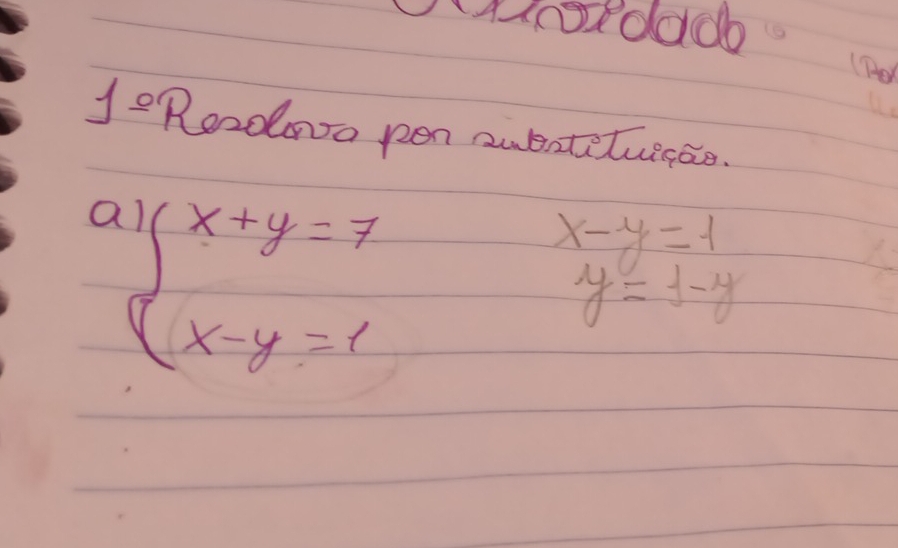 Atividade
1ºResolva por substituição.
a) { x+y=7
x-y=1
y=1-y
x-y=1